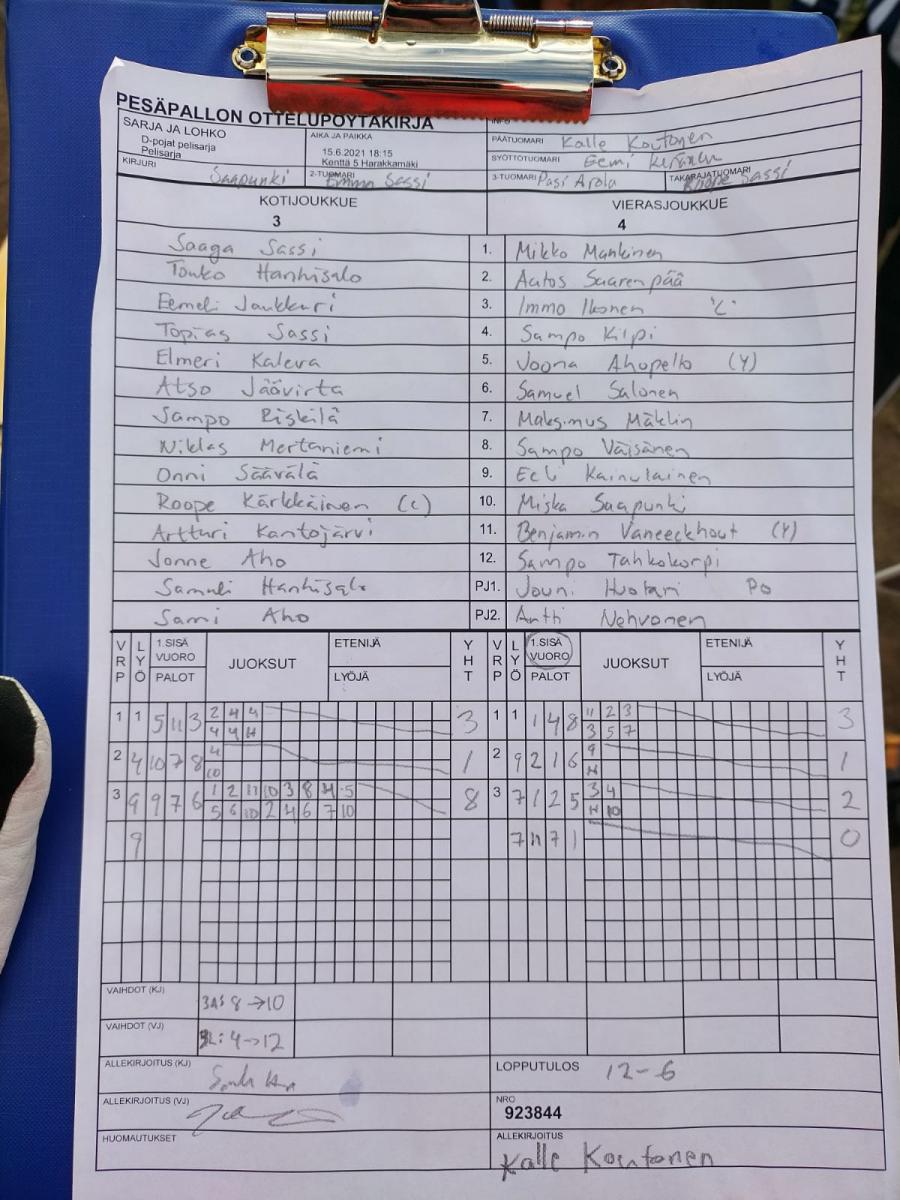 PESÄPALLON OTTELUPÖYTÄKIRJA
INFO
SARJA JA LOHKO
D-pojat pelisarja
Pelisarja
AIKA JA PAIKKA
15.6.2021 18:15
Kenttä 5 Harakkamäki
PÄÄTUOMARI Kalle Kontonen
SYÖTTÖTUOMARI Eemi Keränen
KIRJURI Saapunki
2-TUOMARI Emma Sassi
3-TUOMARI Pasi Arola
TAKARAJATUOMARI Roope Sassi
KOTIJOUKKUE VIERASJOUKKUE
3 4
Saaga Sassi 1. Mikko Mankinen
Touko Hanhisalo 2. Aatos Saarenpää
Eemeli Jaukkuri 3. Immo Ikonen "C"
Topias Sassi 4. Sampo Kilpi
Elmeri Kaleva 5. Joona Ahopelto (Y)
Atso Jäävirta 6. Samuel Salonen
Sampo Riskilä 7. Maksimus Mäklin
Niklas Mertaniemi 8. Sampo Väisänen
Onni Säävälä 9. Eeli Kainulainen
Roope Kärkkäinen (c) 10. Miska Saapunki
Artturi Kantojärvi 11. Benjamin Vaneeckhout (Y)
Jonne Aho 12. Sampo Tahkokorpi
Samuli Hanhisalo PJ1. Jouni Huotari Po
Sami Aho PJ2. Antti Nehvonen
VRP LYÖ 1.SISÄ VUORO PALOT JUOKSUT ETENIJÄ LYÖJÄ YHT VRP LYÖ 1.SISÄ VUORO PALOT JUOKSUT ETENIJÄ LYÖJÄ YHT
1 1 5 11 3 2 4 4 3 1 1 1 4 8 11 2 3 3
4 4 H 3 5 7
2 4 10 7 8 4 1 2 9 2 1 6 9 1
10 H
3 9 9 7 6 1 2 11 10 3 8 H 5 8 3 7 1 2 5 3 4 2
5 6 10 2 4 6 7 10 H 10
9 7 H 7 1 0
VAIHDOT (KJ) 3AS 8 → 10
VAIHDOT (VJ) 4 → 12
ALLEKIRJOITUS (KJ)
LOPPUTULOS 12-6
ALLEKIRJOITUS (VJ)
NRO
923844
HUOMAUTUKSET
ALLEKIRJOITUS
Kalle Kontonen